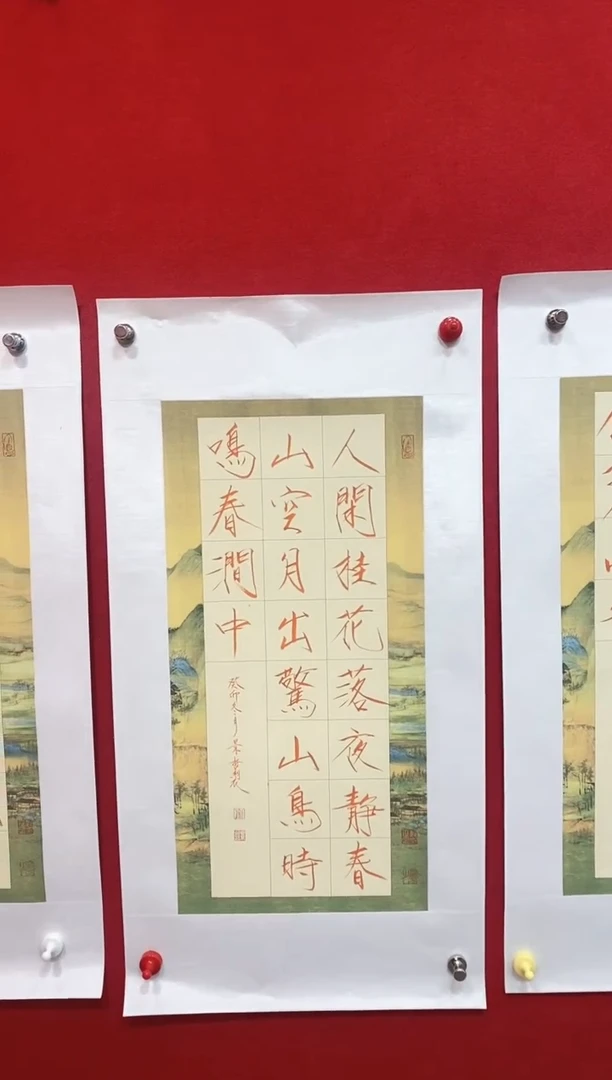 人閑桂花落夜靜春
山空月出驚山鳥時
鳴春澗中
癸卯冬月